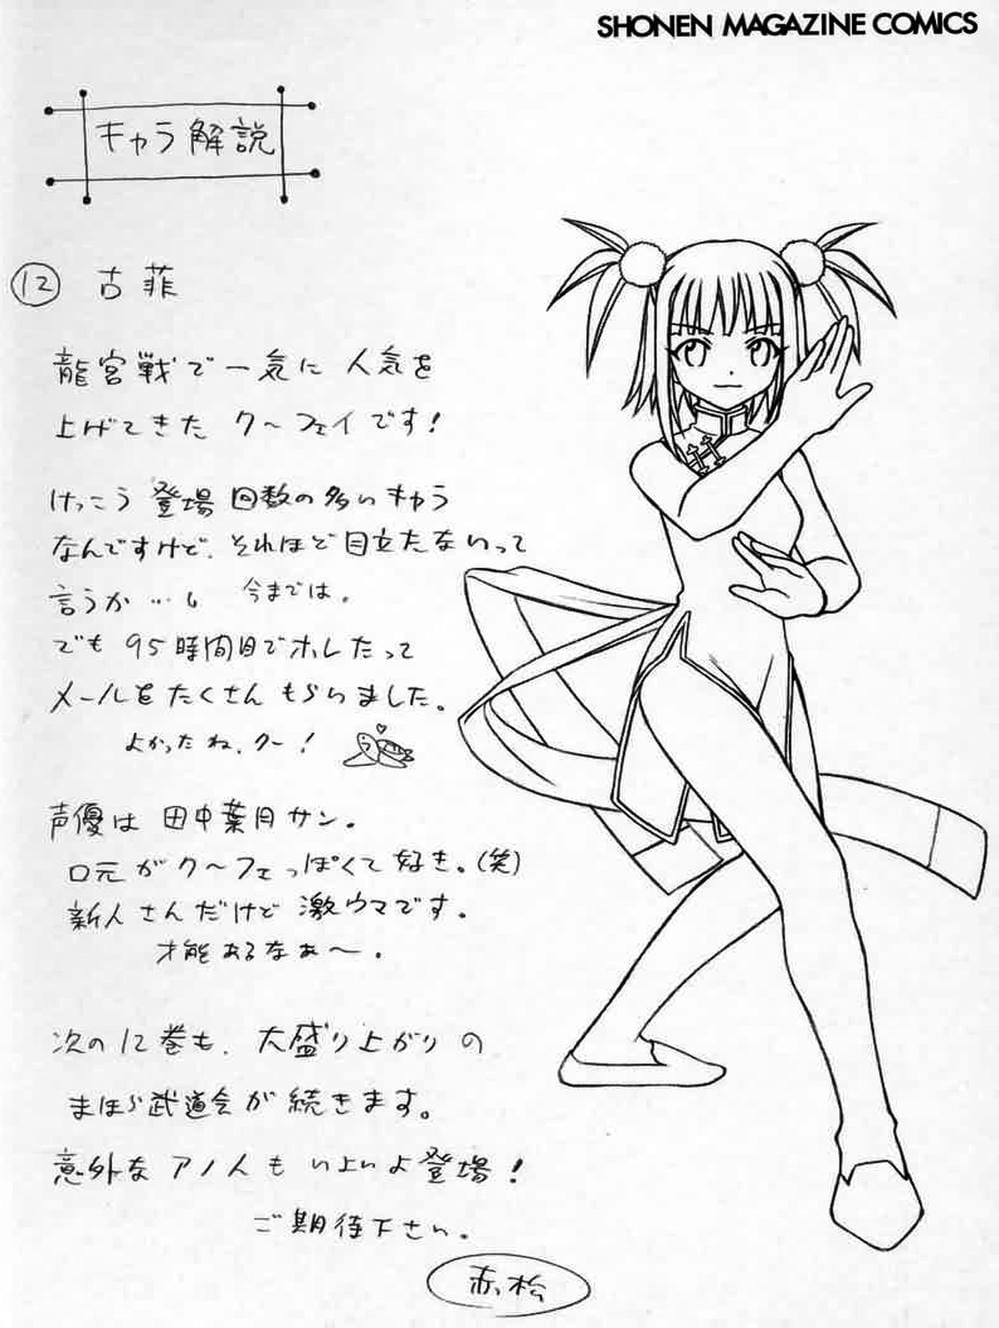 SHONEN MAGAZINE COMICS
キャラ解説
⑫ 古菲
龍宮戦で一気に人気を
上げてきた ク〜フェイです!
けっこう 登場回数の多いキャラ
なんですけど、それほど目立たないって
言うか… 今までは。
でも 95時間目でホレたって
メールをたくさん もらいました。
よかったね、クー!
声優は 田中葉月サン。
口元がク〜フェっぽくて好き。(笑)
新人さんだけど 激ウマです。
才能あるなぁ〜。
次の12巻も、大盛り上がりの
まほら武道会が続きます。
意外なアノ人も いよいよ登場!
ご期待下さい。
赤松